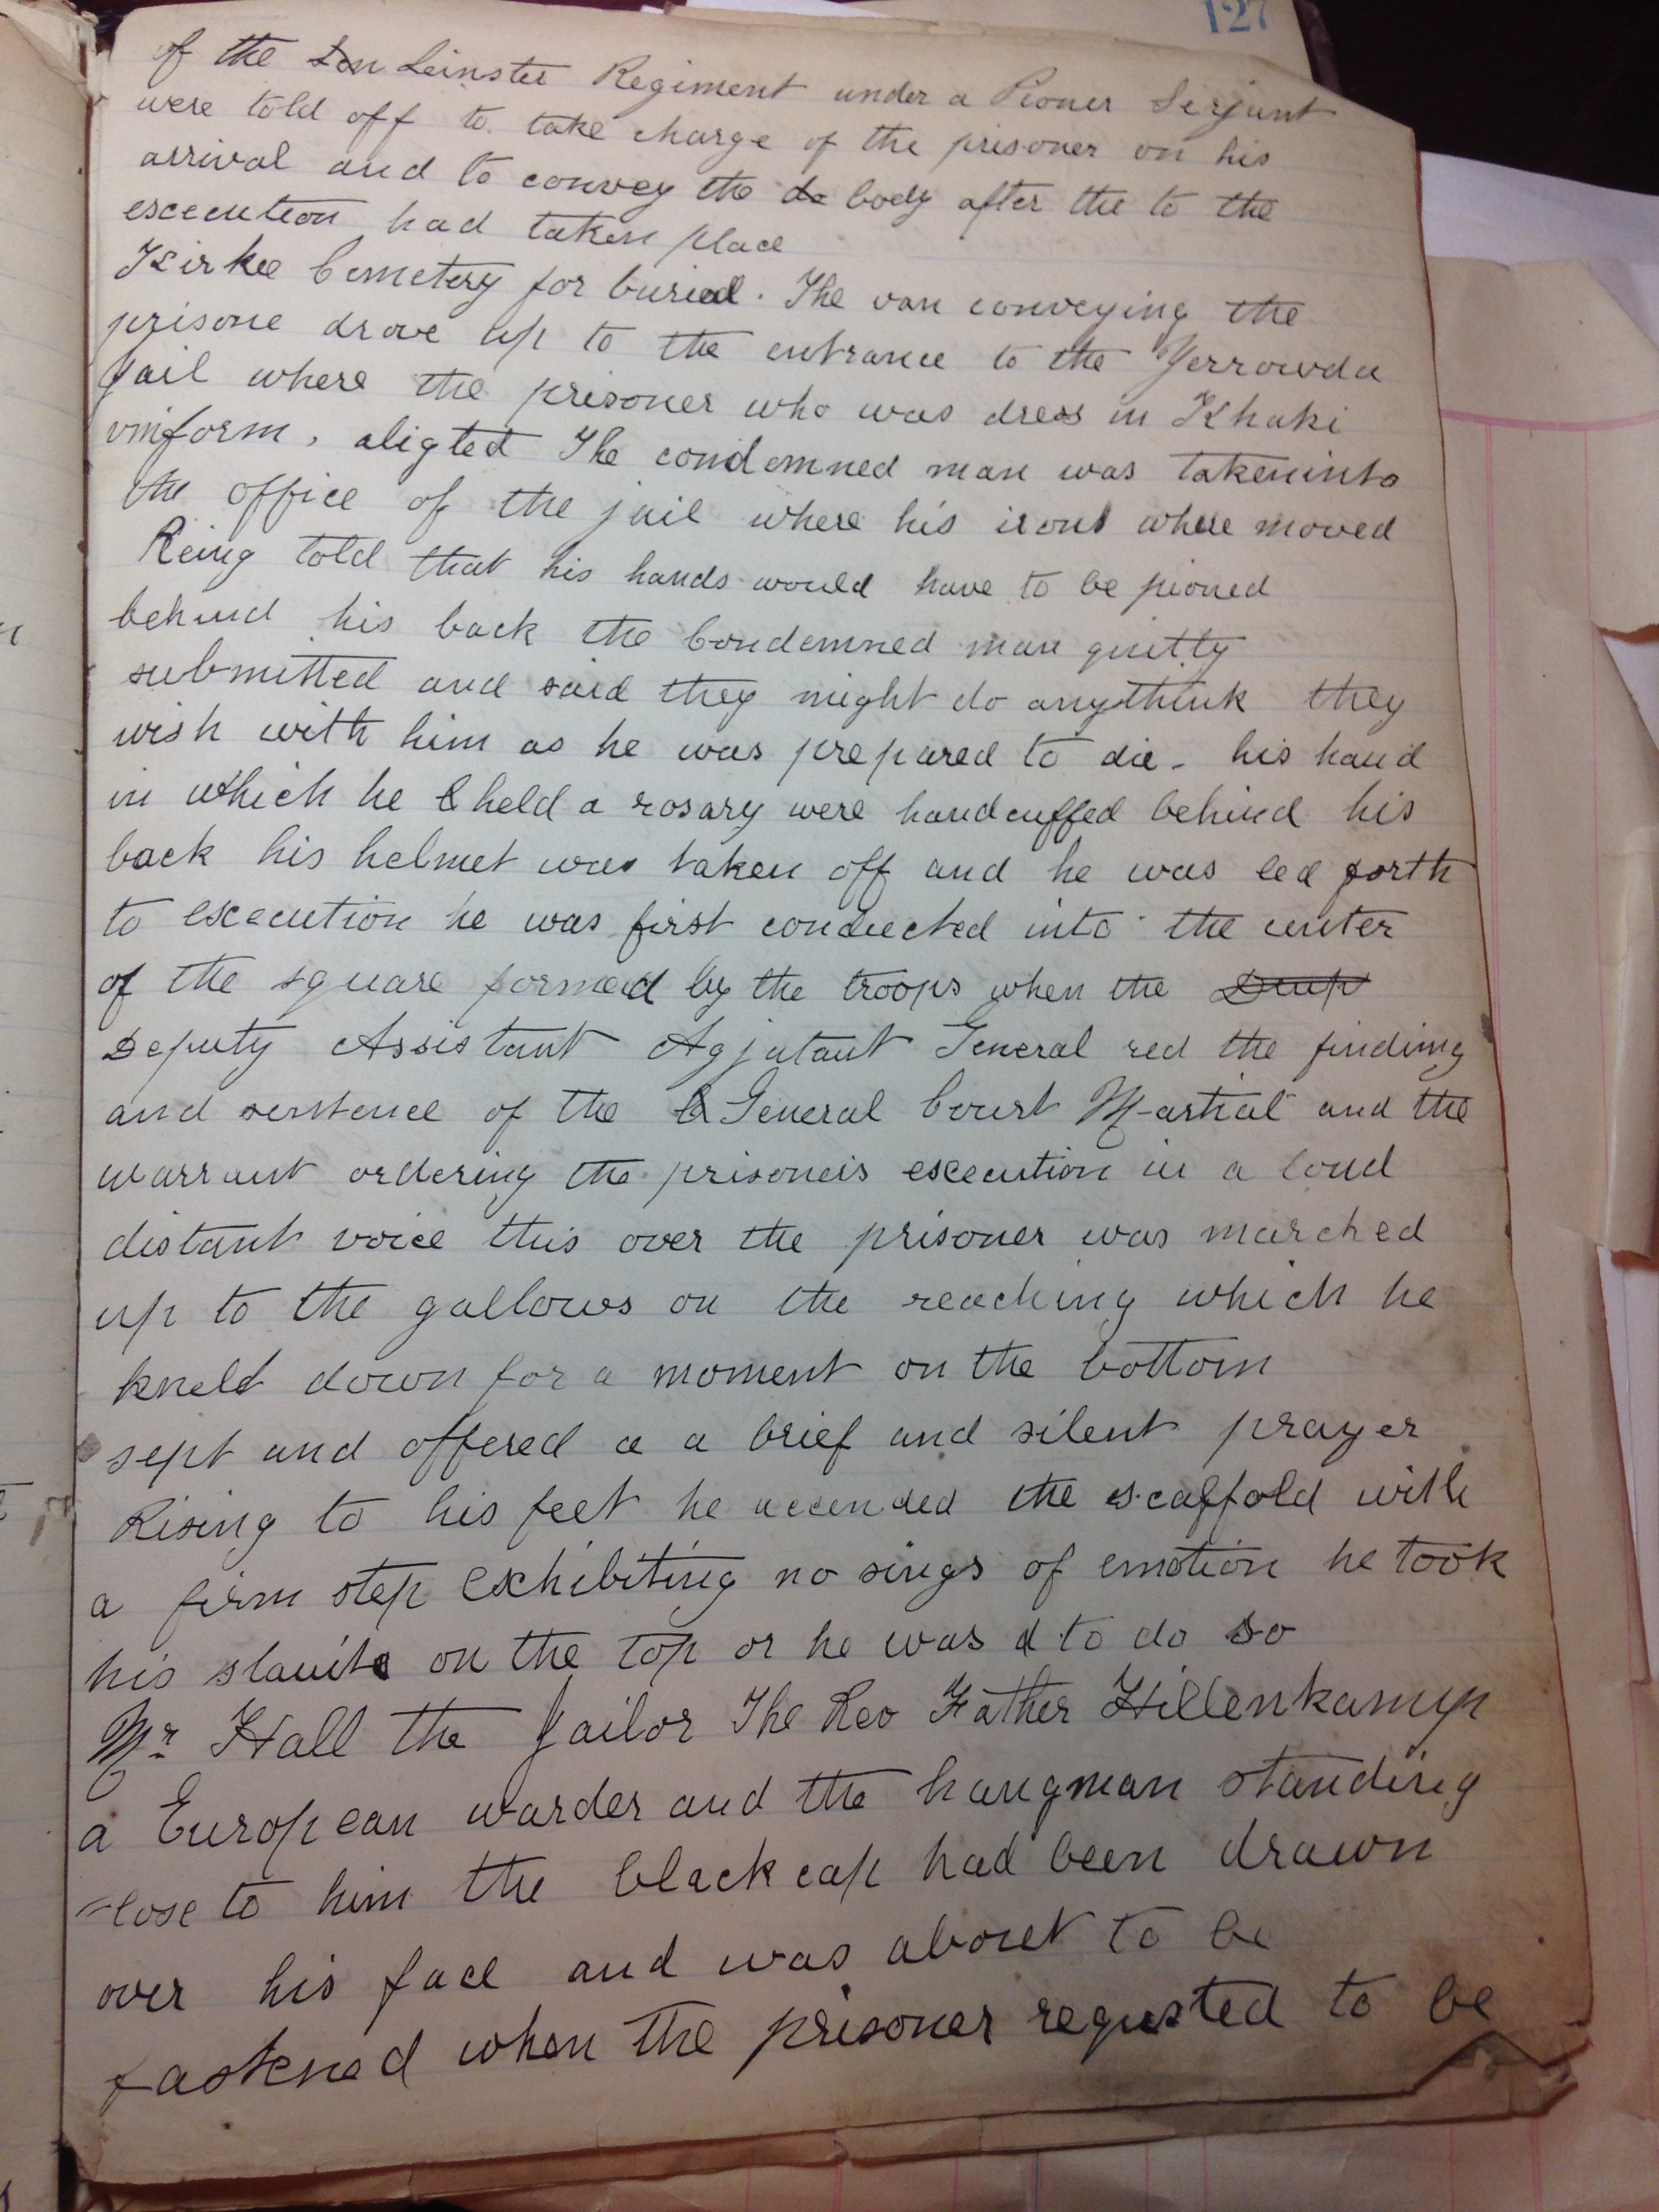 127
of the Len Leinster Regiment under a Pioner Serjunt
were told off to take charge of the prisoner on his
arrival and to convey the de body after the to the
escecution had taken place
Kirkee Cemetery for buried. The van conveying the
prisone drove up to the entrance to the Yerrowda
Jail where the prisoner who was dress in Khaki
uniform, aligted The condemned man was takeninto
the office of the jail where his irons where moved
Being told that his hands would have to be pioned
behind his back the Condemned man quitty
submitted and said they might do anythink they
wish with him as he was prepared to die - his hand
in which he held a rosary were handcuffed behind his
back his helmet was taken off and he was led forth
to escecution he was first conducted into the center
of the square formed by the troops when the Deup
Deputy Assistant Agjutant General red the finding
and sentence of the General Court Martial and the
warrant ordering the prisoneis escecution in a loud
distant voice this over the prisoner was marched
up to the gallows on the reaching which he
knelt down for a moment on the bottom
sept and offered a a brief and silent prayer
Rising to his feet he accended the scaffold with
a firm step exhibiting no sings of emotion he took
his on the top or he was d to do so
Mr Hall the Jailor The Rev Father Hillenkamp
a European warder and the hangman standing
close to him the black cap had been drawn
over his face and was about to be
fastened when the prisoner requsted to be